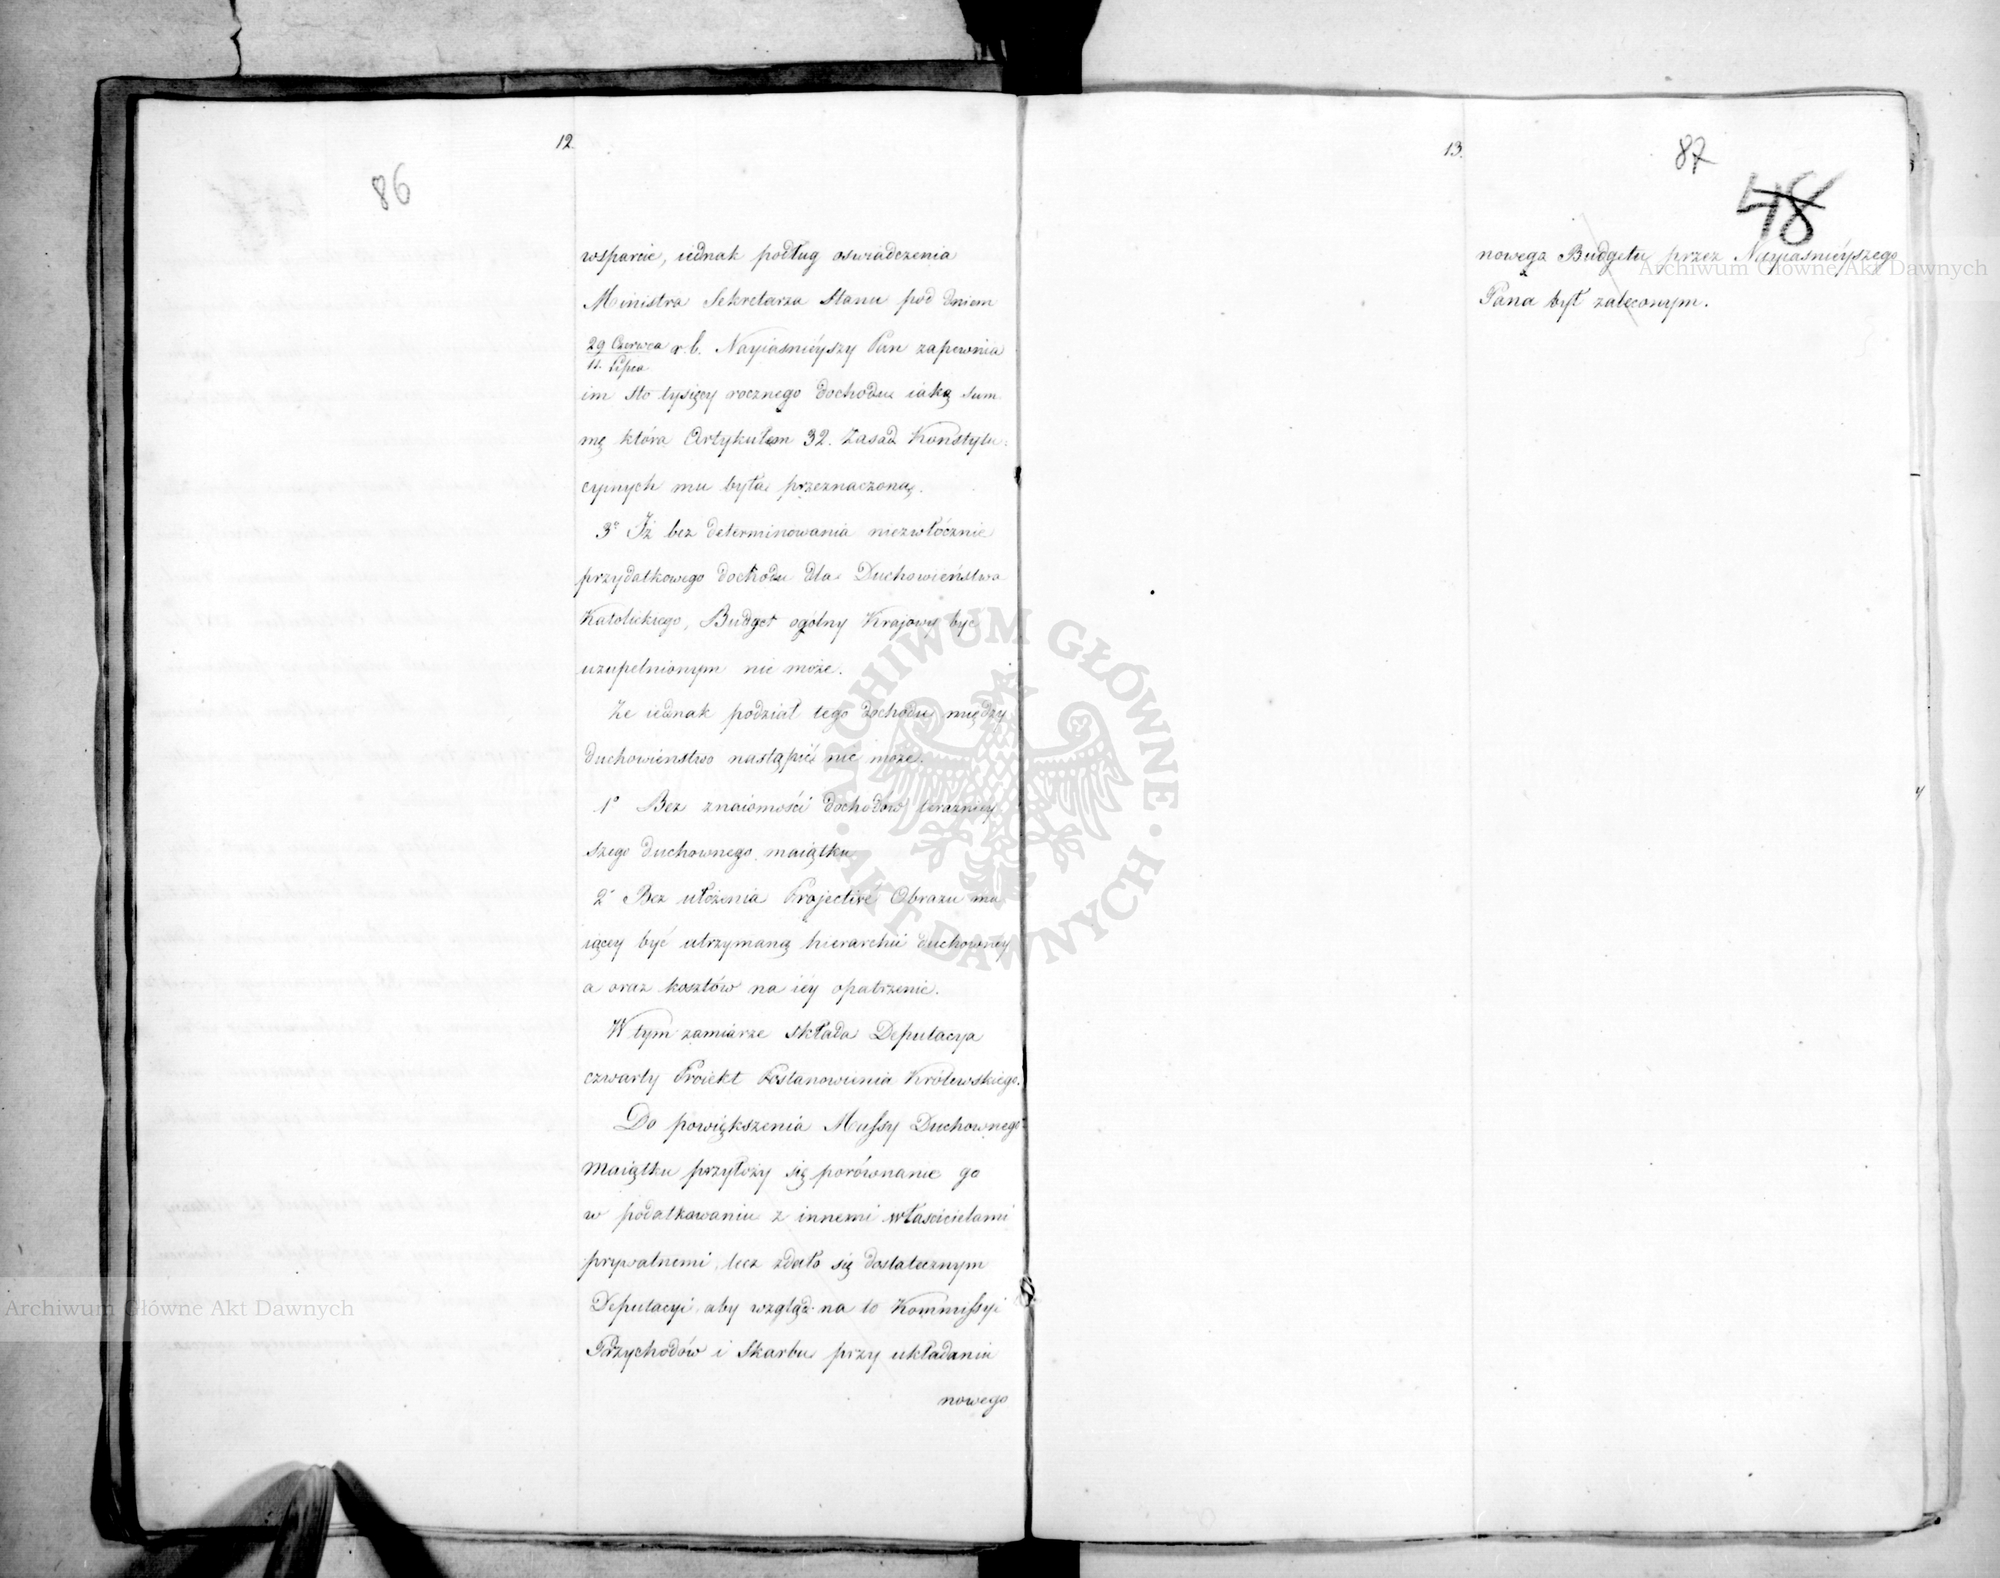 12
86
wsparcie, iednak podług oswiadczenia
Ministra Sekretarza Stanu pod dniem
29 Czerwca r. b. Nayiasnieyszy Pan zapewnia
11. Lipca
im sto tysięcy rocznego dochodu iaką sum
mę która Artykułem 32. Zasad Konstytu=
cyinych mu była przeznaczoną.
3° Iż bez determinowania niezwłócznie
przydatkowego dochodu dla Duchowieństwa
Katolickiego, Budget ogólny Krajowy być
uzupełnionym nie może.
Ze iednak podział tego dochodu między
duchowieństwo nastąpić nie może.
1° Bez znaiomości dochodów teraźniey
szego duchownego maiątku
2° Bez ułożenia Projective Obrazu ma
iącey być utrzymaną hierarchii duchowney
a oraz kosztów na iéy opatrzenie.
W tym zamiarze składa Deputacya
czwarty Proiekt Postanowienia Królewskiego.
Do powiększenia Massy Duchownego
maiątku przyłoży się porównanie go
w podatkowaniu z innemi właścicielami
prywatnemi, lecz zdało się dostatecznym
Deputacyi, aby wzgląd na to Kommissyi
Przychodów i Skarbu przy układaniu
nowego
13.
87
48
nowego Budgetu przez Nayiasnieyszego
Pana był zaleconym.
Archiwum Główne Akt Dawnych
ARCHIWUM GŁÓWNE
AKT DAWNYCH
Archiwum Główne Akt Dawnych